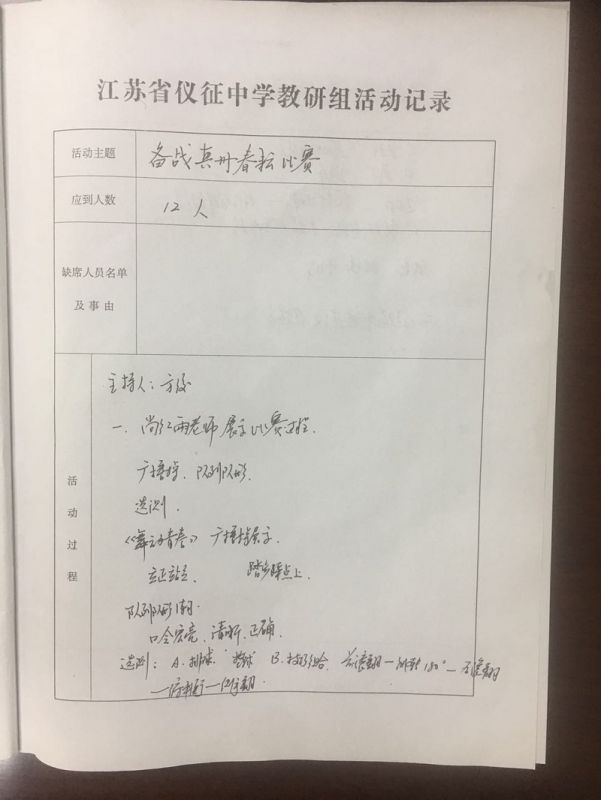 江苏省仪征中学教研组活动记录
活动主题
备战真州春耘比赛
应到人数
12人
缺席人员名单
及事由
活动过程
主持人：方
一、尚红雨老师展示比赛过程.
广播操、队列队形.
选测.
《舞动青春》广播操展示.
立正站立 踏步踩点上.
队列队形
口令宏亮、清晰、正确.
选测：A.排球、篮球 B.技巧组合 前滚翻—180°—后滚翻